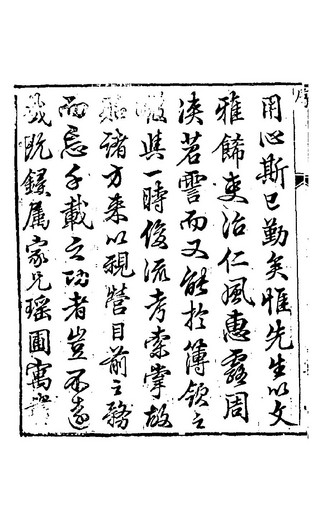 用心斯已勤矣惟先生以文
雅飾吏治仁風惠露周
浹苕霅而又能於簿領之
暇與一時俊流考索掌故
諸方來以視營目前之務
而忘千載之功者豈不遠
哉既鋟屬家兄瑶圃寓